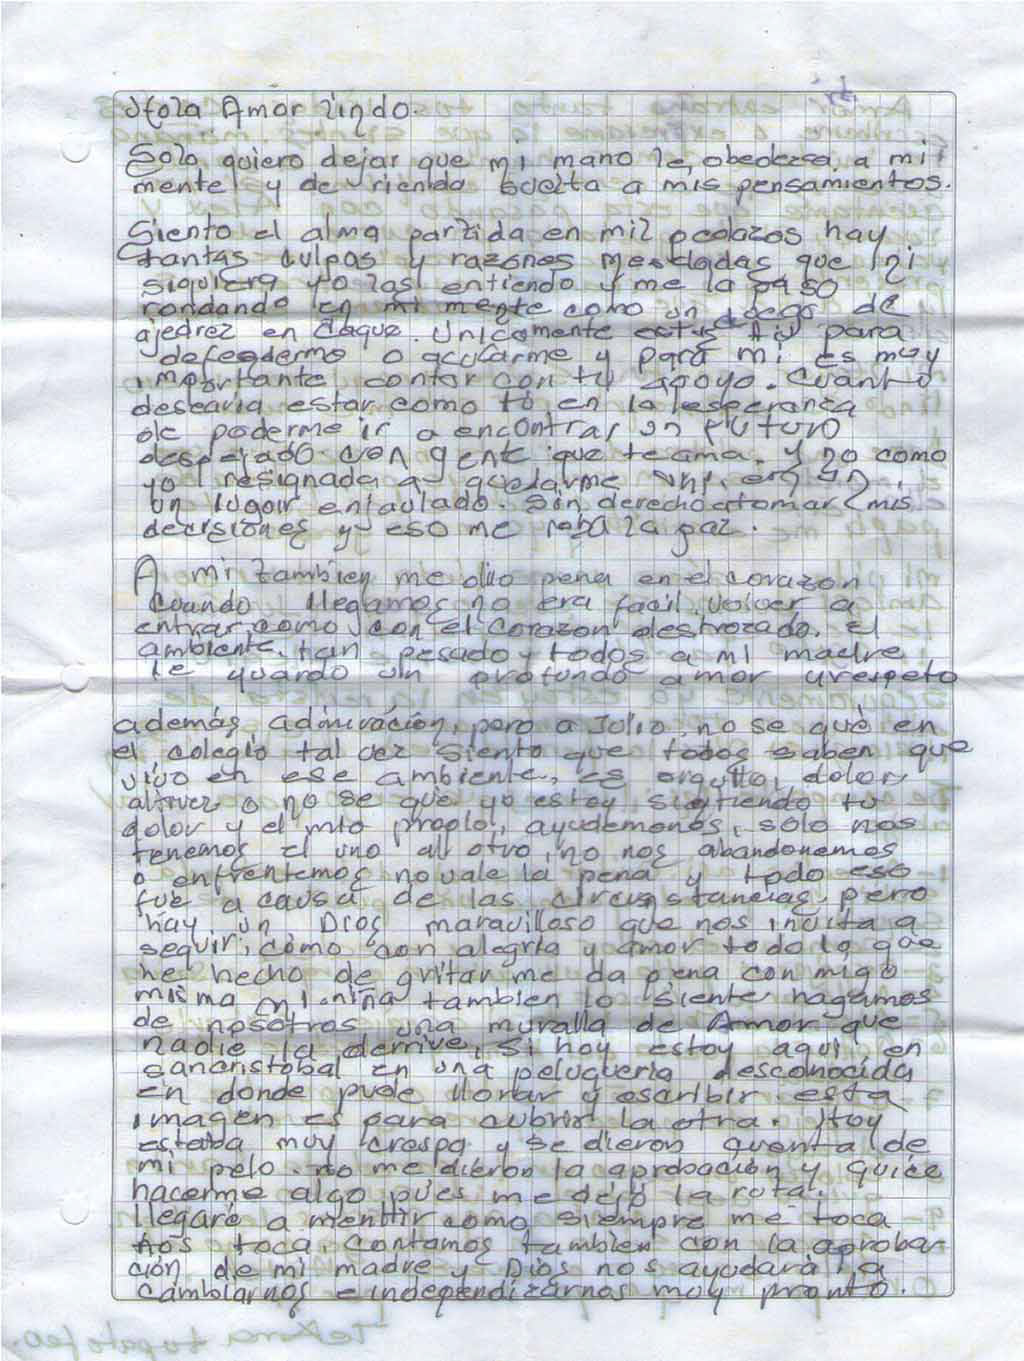 Hola Amor lindo.
Solo quiero dejar que mi mano le obedezca a mi
mente y de rienda suelta a mis pensamientos.
Siento el alma partida en mil pedazos hay
tantas culpas y razones mescladas que ni
siquiera yo las entiendo y me la paso
rondando en mi mente como un juego de
ajedrez en Jaque. Unicamente estas tu para
defendermo o acusarme y para mi es muy
importante contar con tu apoyo. Cuanto
desearia estar como tú en la esperanza
de poderme ir a encontrar un futuro
despejado con gente que te ama. y no como
yo resignada a quedarme en un
un lugar enjaulado. Sin derecho a tomar mis
decisiones y eso me roba la paz.
A mi tambien me dio pena en el corazon
cuando llegamos no era facil volver a
entrar como con el corazon destrozado. El
ambiente tan pesado y todos a mi madre
le guardo un profundo amor y respeto
además admiración, pero a Julio no se qué en
el colegio tal vez siento que todos saben que
vivo en ese ambiente, es orgullo, dolor,
altivez o no se que yo estoy sintiendo tu
dolor y el mio propio, ayudemonos, solo nos
tenemos el uno al otro, no nos abandonemos
o enfrentemos no vale la pena y todo eso
fue a causa de las circunstancias, pero
hay un Dios maravilloso que nos invita a
seguir, como con alegria y amor todo lo que
he hecho de gritar me da pena conmigo
misma mi niña tambien lo siente hagamos
de nosotros una muralla de Amor que
nadie la derrive, Si hoy estoy aqui en
sancristobal en una peluqueria desconocida
en donde pude llorar y escribir esta
imagen es para cubrir la otra. Hoy
estaba muy crespa y se dieron quenta de
mi pelo no me dieron la aprobacion y quice
hacerme algo pues me dejó la ruta.
llegaré a menttir como siempre me toca
nos toca. Contamos tambien con la aprobar
ción de mi madre y Dios nos ayudará a
cambiarnos e independizarnos muy pronto.